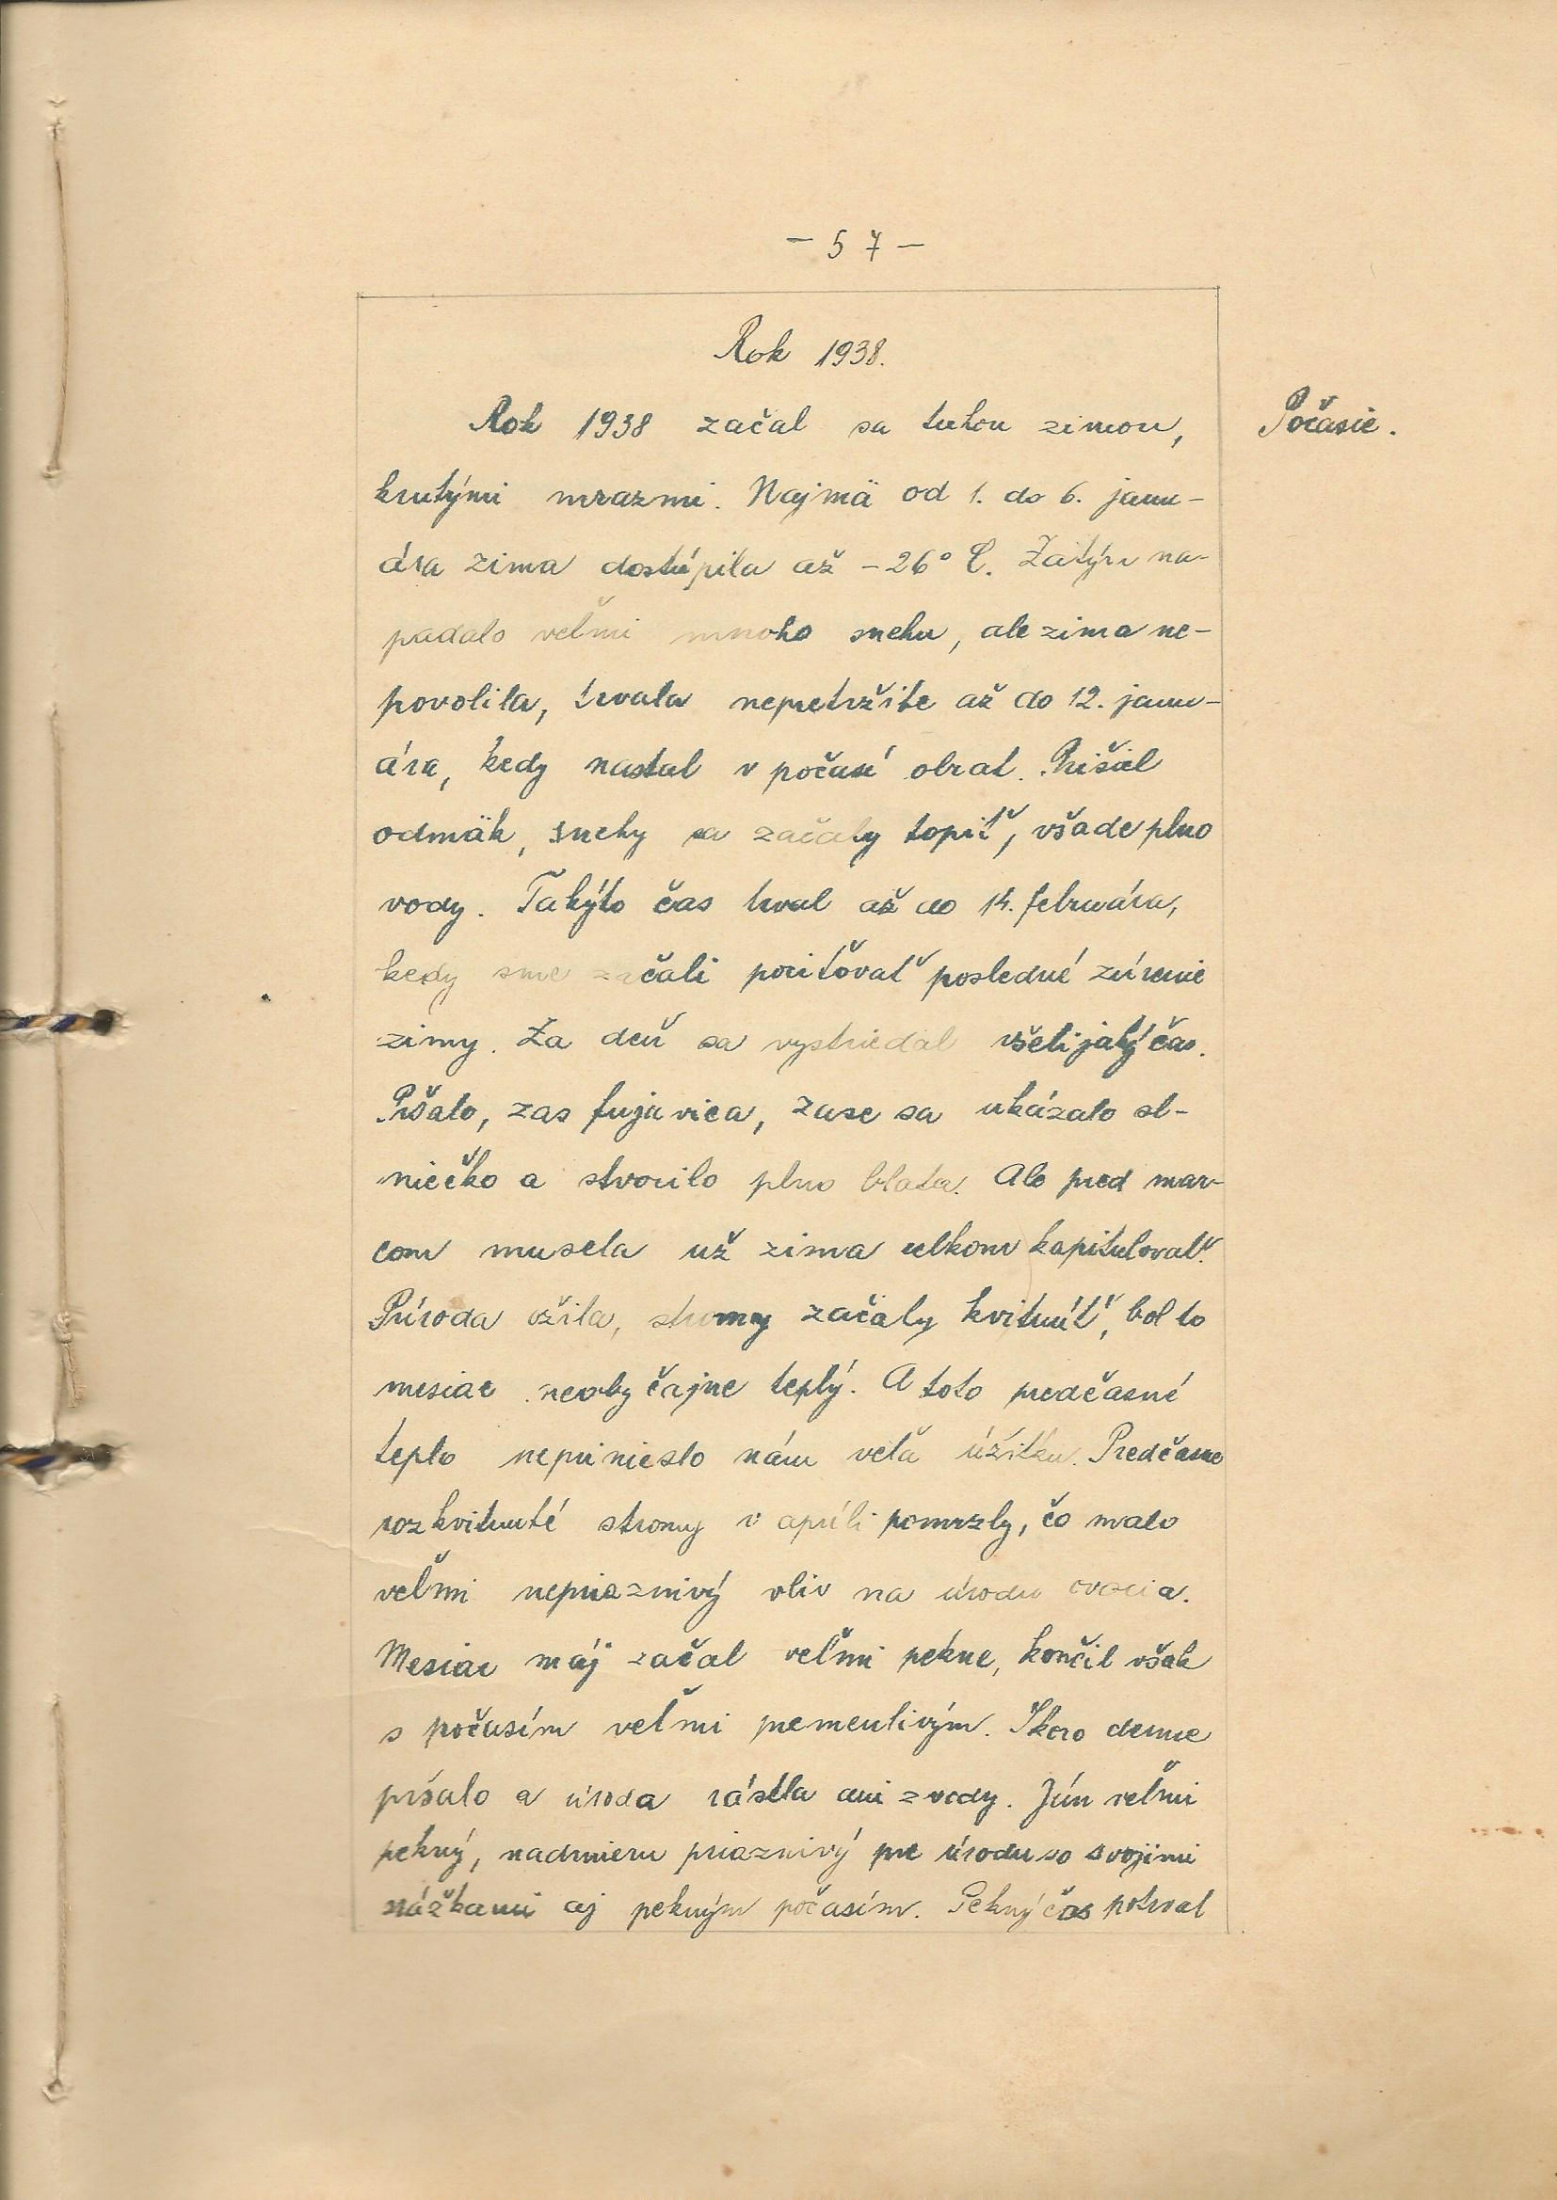 - 57 -
Rok 1938.
Rok 1938 začal sa tuhou zimou,
Počasie.
krutými mrazmi. Najmä od 1. do 6. janu-
ára zima dostúpila až -26° C. Zatým na-
padalo veľmi mnoho snehu, ale zima ne-
povolila, trvala nepretržite až do 12. janu-
ára, kedy nastal v počasí obrat. Prišiel
odmäk, snehy sa začaly topiť, všade plno
vody. Takýto čas trval až do 14. februára,
kedy sme začali pociťovať posledné zúrenie
zimy. Za deň sa vystriedal všelijaký čas.
Pršalo, zas fujavica, zase sa ukázalo sl-
niečko a stvorilo plno blata. Ale pred mar-
com musela už zima celkom kapitulovať.
Príroda ožila, stromy začaly kvitnúť, bol to
mesiac neobyčajne teplý. A toto predčasné
teplo neprinieslo nám veľa úžitku. Predčasne
rozkvitnuté stromy v apríli pomrzly, čo malo
veľmi nepriaznivý vliv na úrodu ovocia.
Mesiac máj začal veľmi pekne, končil však
s počasím veľmi premenlivým. Skoro denne
pršalo a úroda rástla ani z vody. Jún veľmi
pekný, nadmieru priaznivý pre úrodu so svojimi
srážkami aj pekným počasím. Pekný čas potrval